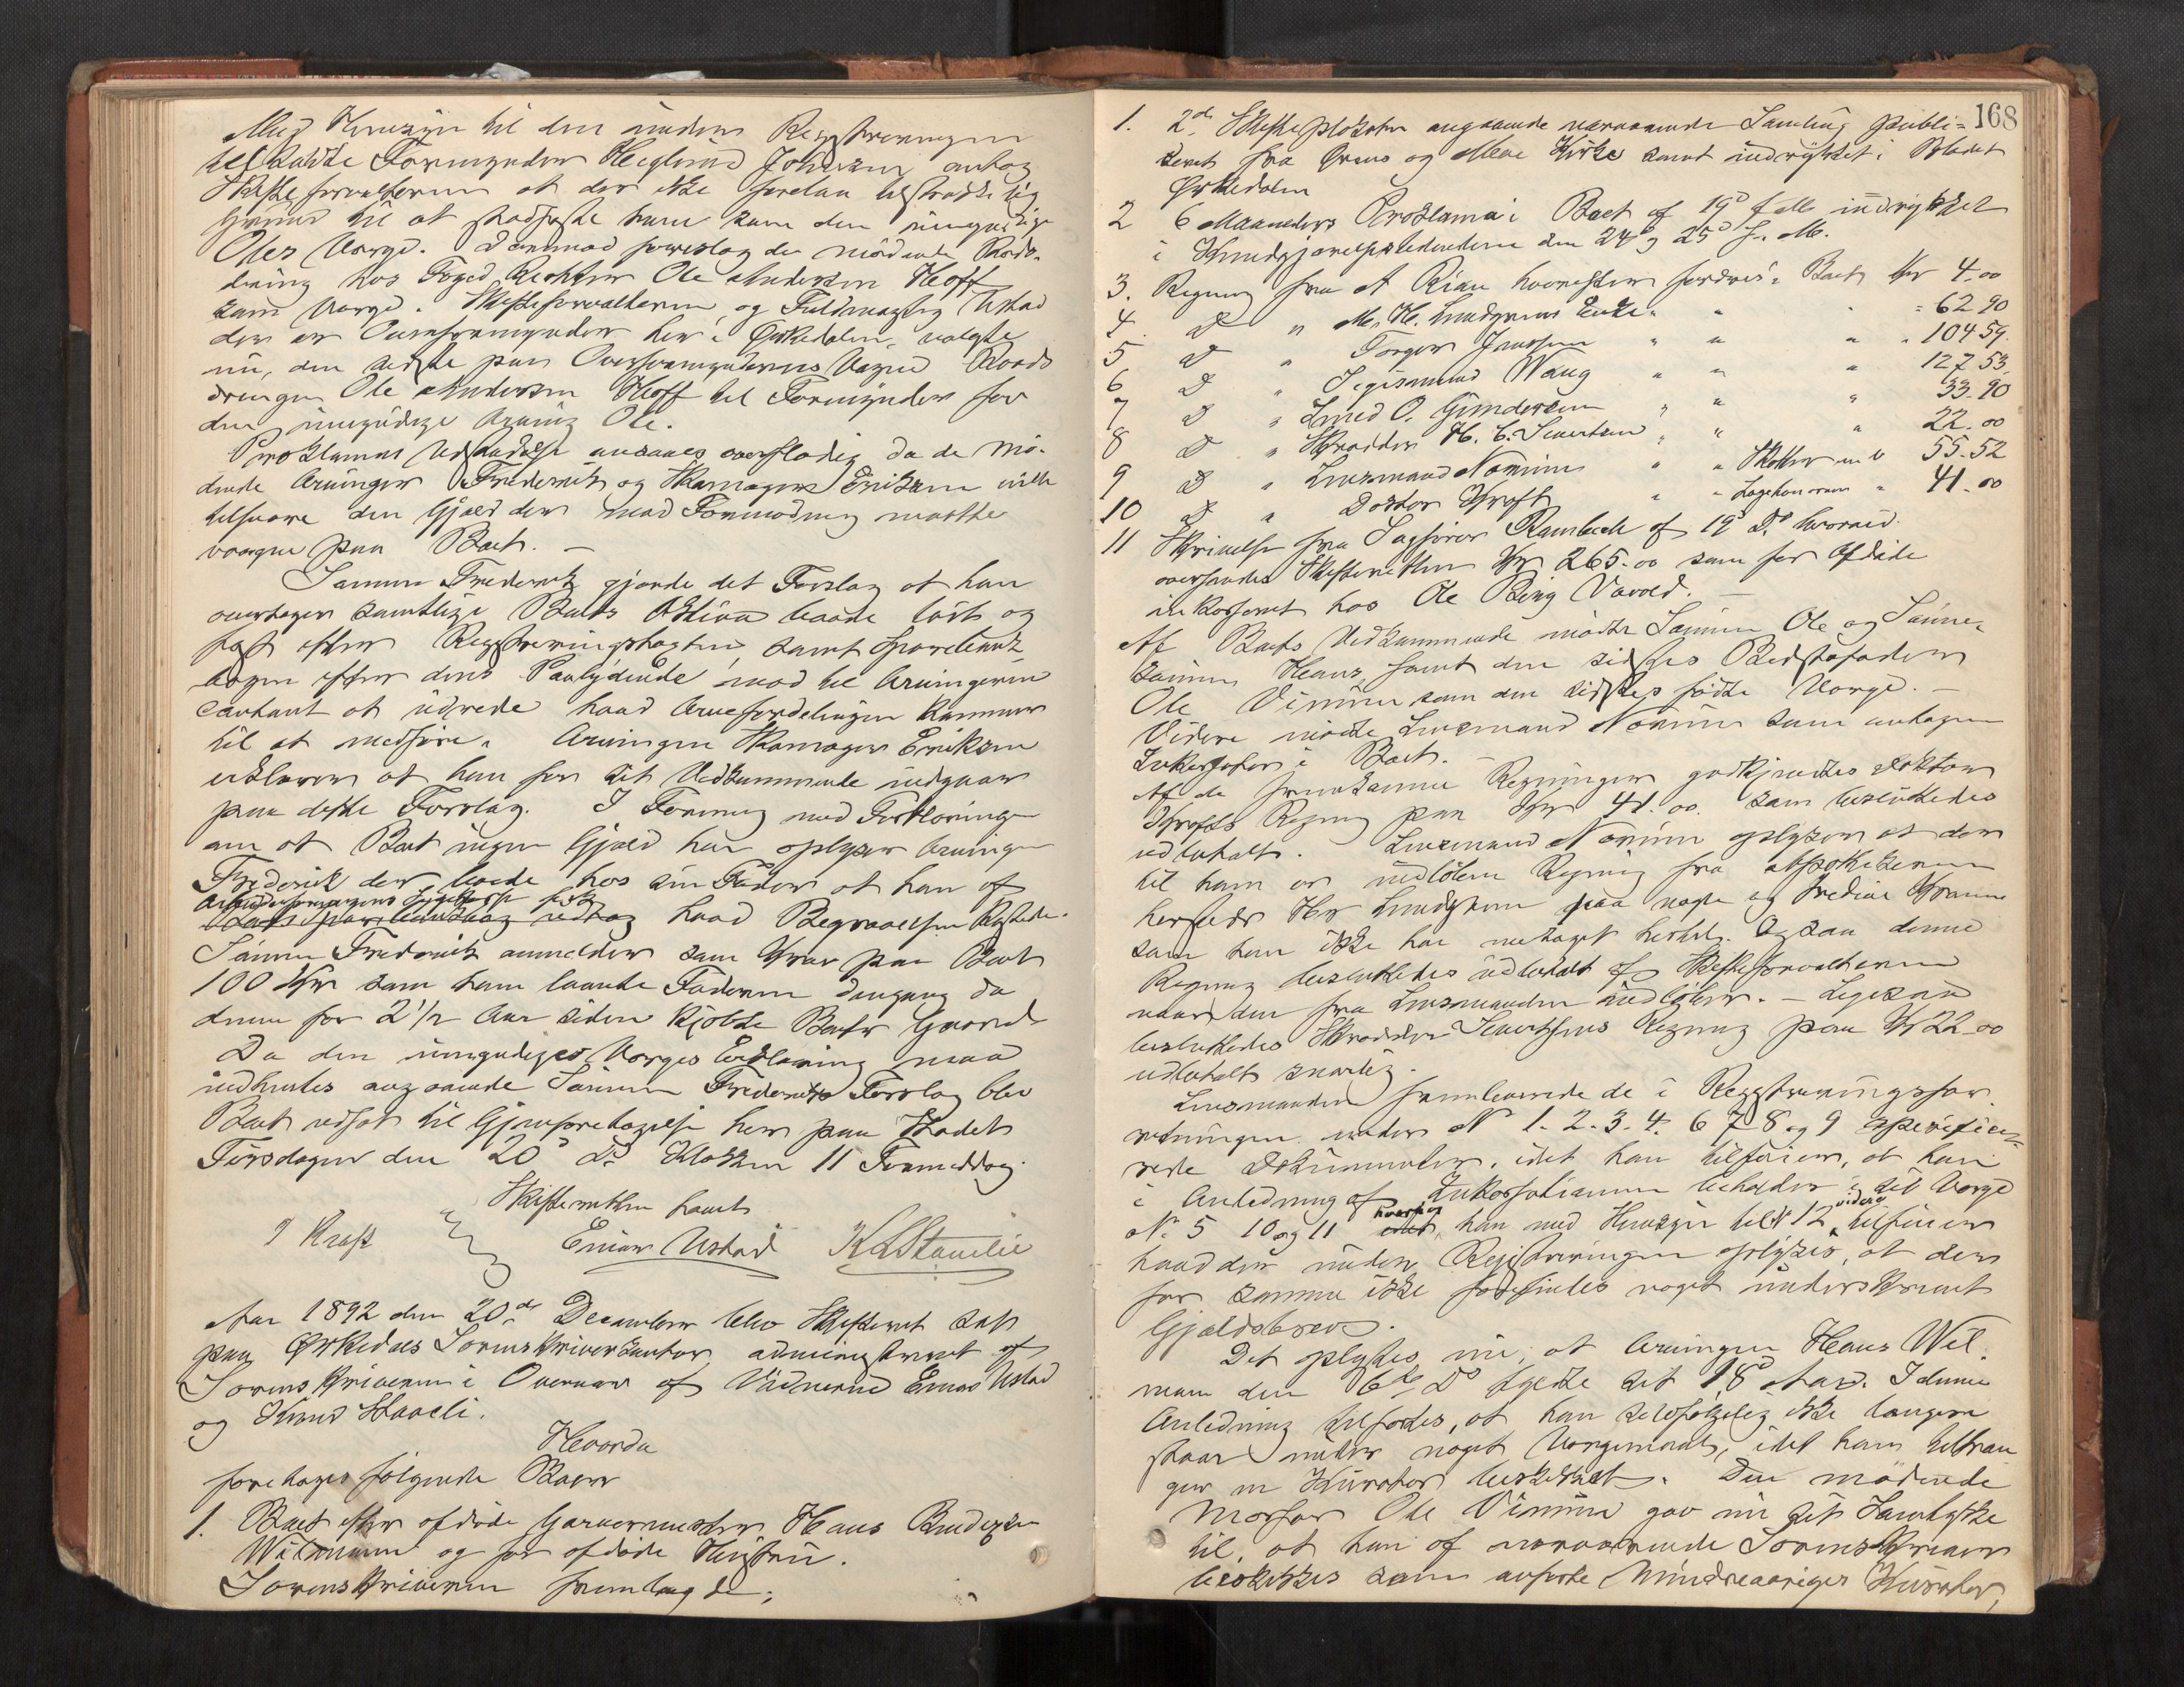 Med Hensyn til den under Registreringen
tilkaldte Formynder Heglund Johnsen antog
Skifteforvalteren at der ikke forelaa tilstrækkelig
Grund til at stadfæste ham som den umyndige
Oles Værge. Derimod foreslog de mødende Paade-
dreng hos Foged Richter Ole Andersen Hoff
som Værge. Skifteforvalteren og Fuldmægtig Ustad
der er Overformynder her i Ørkedalen, valgte
nu, den sidste paa Overformynderiets Vegne
Ole Andersen Hoff til Formynder for
den umyndige Arving Ole.
Proklamas Udstædelse ansaaes overflødig da de mø-
dende Arvinger Frederik og Skomager Eriksen ville
tilsvare den Gjæld der mod Formodning maatte
være paa Boet. —
Sønnen Frederik gjorde det Forslag at han
overtager samtlige Boets Aktiva baade løst og
fast efter Registreringstaxten, samt Sparebank-
bogen efter dens Paalydende mod til Arvingerne
contant at udrede hvad Arvefordelingen kommer
til at medføre. Arvingen Skomager Eriksen
erklærer at han for sit Vedkommende indgaar
paa dette Forslag. I Forening med Forklaringen
om at Boet ingen Gjæld har oplyser Arvingen
Frederik der boede hos sin Fader at han af
Arbeiderforeningens Sygekasse fik
hvad Begravelsen kostede.
Sønnen Frederik anmelder som Krav paa Boet
100 Kr som han laante Faderen dengang da
denne for 2 1/2 Aar siden kjøbte Boets Gaard
Da den umyndiges Værges Erklæring maa
indhentes angaaende Sønnen Frederiks Forslag blev
Boet udsat til Gjenforetagelse her paa Stedet
Tirsdagen den 20de ds Klokken 11 Formiddag.
Skifteretten hævet
T Kraft
Einar Ustad K Staveli
Aar 1892 den 20de December blev Skifteret sat
paa Ørkedals Sorenskriverkontor administreret af
Sorenskriveren i Overvær af Vidnerne Einar Ustad
og Knud Staveli.
Hvorda
foretages følgende Boer
1. Boet efter afdøde Garvermester Hans
Wilmann og før afdøde Hustru.
Sorenskriveren fremlagde:
168
1. 2de Skifteplakater angaaende nærværende Samling publi-
ceret fra Ørens og Moe Kirke samt indrykket i Bladet
Ørkedalen
2 6 Maaneders Proklama i Boet af 19de f. M. indrykket
i Kundgjørelsestidenden den 24de og 25de f. M.
3. Regning fra A Rian hvorefter fordres i Boet Kr 4.00
4. D " M. H. Lundgreens Enke " " " 62 90
5 D " Torger Janssen " " " 104 59.
6 D " Sigismund Wang " " " 127 53
7 D " Smed O. Gundersen " " " 33.90
8 D " Skrædder H. C. Sivertsen " " " 22.00
9 D " Lensmand Nonum " " Skatter m. v 55.52
10 D " Doktor Kraft " " Lægehonorar " 41.00
11 Skrivelse fra Sagfører Rambech af 19de Ds hvorved
oversendes Skifteretten Kr 265.00 som før afdøde
inkasseret hos Ole Berg Varvold. —
Af Boets Vedkommende mødte Sønnen Ole og Sønne-
sønnen Hans, samt den sidstes Bedstefader
Ole Vinum som den sidstes fødte Værge. —
Videre mødte Lensmand Nonum som antagen
Inkassator i Boet. —
Af de fremkomne Regninger godkjendtes Doktor
Krafts Regning paa Kr 41.00. som besluttedes
udbetalt. Lensmand Nonum oplyser at der
til ham er indløben Regning fra Apothekeren
hersteds Hr Lundgreen paa nogle og tredive Kroner
som han ikke har medtaget hertil. Ogsaa denne
Regning besluttedes udbetalt af Skifteforvalteren
naar den fra Lensmanden indløber. — Ligesaa
besluttedes Skrædder Sivertsens Regning paa Kr 22.00
udbetalt snarlig.
Lensmanden fremleverede de i Registreringsfor-
retningen under No 1. 2. 3. 4. 6 7 8 og 9 specifice-
rede Dokumenter, idet han tilføier, at han
i Anledning af Inkassationen beholder i sit Værge
No 5 10 og 11 hvorhos han med Hensyn til No 12 videre tilføier
hvad der under Registreringen oplystes, at der
for samme ikke forefindes noget underskrevet
Gjældsbrev.
Det oplystes nu, at Arvingen Hans Wil-
mann den 6te Ds fyldte sit 18de Aar. I denne
Anledning tilføies, at han selvfølgelig ikke længere
staar under noget Værgemaal, idet han tiltræn-
ger en Kurator beskikket. Den mødende
Morfar Ole Vinum gav nu sit Samtykke
til, at han af nærværende Sorenskriver
beskikkes som anførte Mindreaariges Kurator,